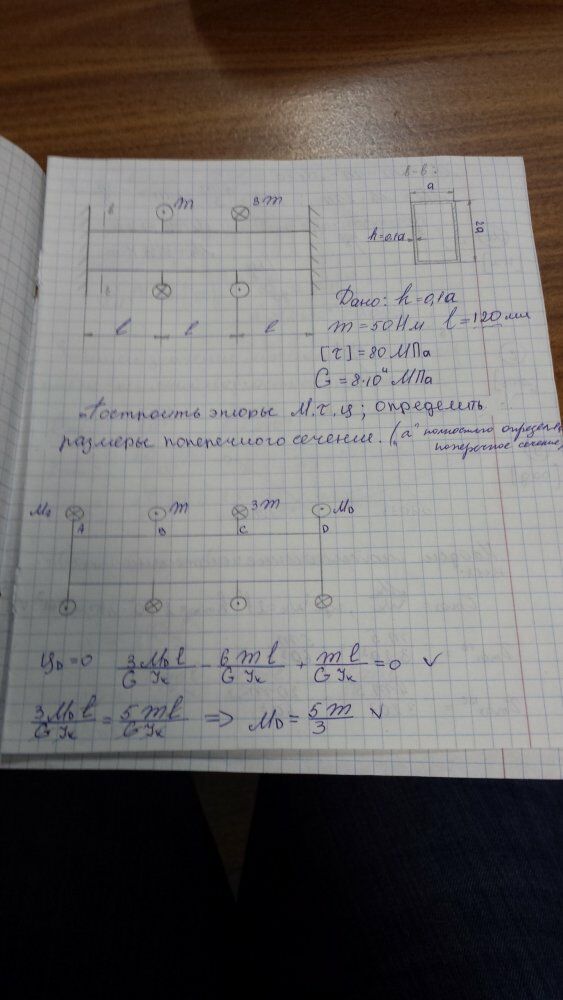 в-в:
a
m
3m
в
2a
h=0,1a
в
l l l
Дано: h=0,1a
m = 50 Нм l = 120 мм
[τ] = 80 МПа
G = 8·10⁴ МПа
Построить эпюры М, τ, φ; определить
размеры поперечного сечения. ("a" полностью определяет
поперечное сечение)
m
3m
M_D
A
B
C
D
φ_D = 0 3M_D l / G J_к - 6ml / G J_к + ml / G J_к = 0 ✓
3M_D l / G J_к = 5ml / G J_к => M_D = 5m / 3 ✓